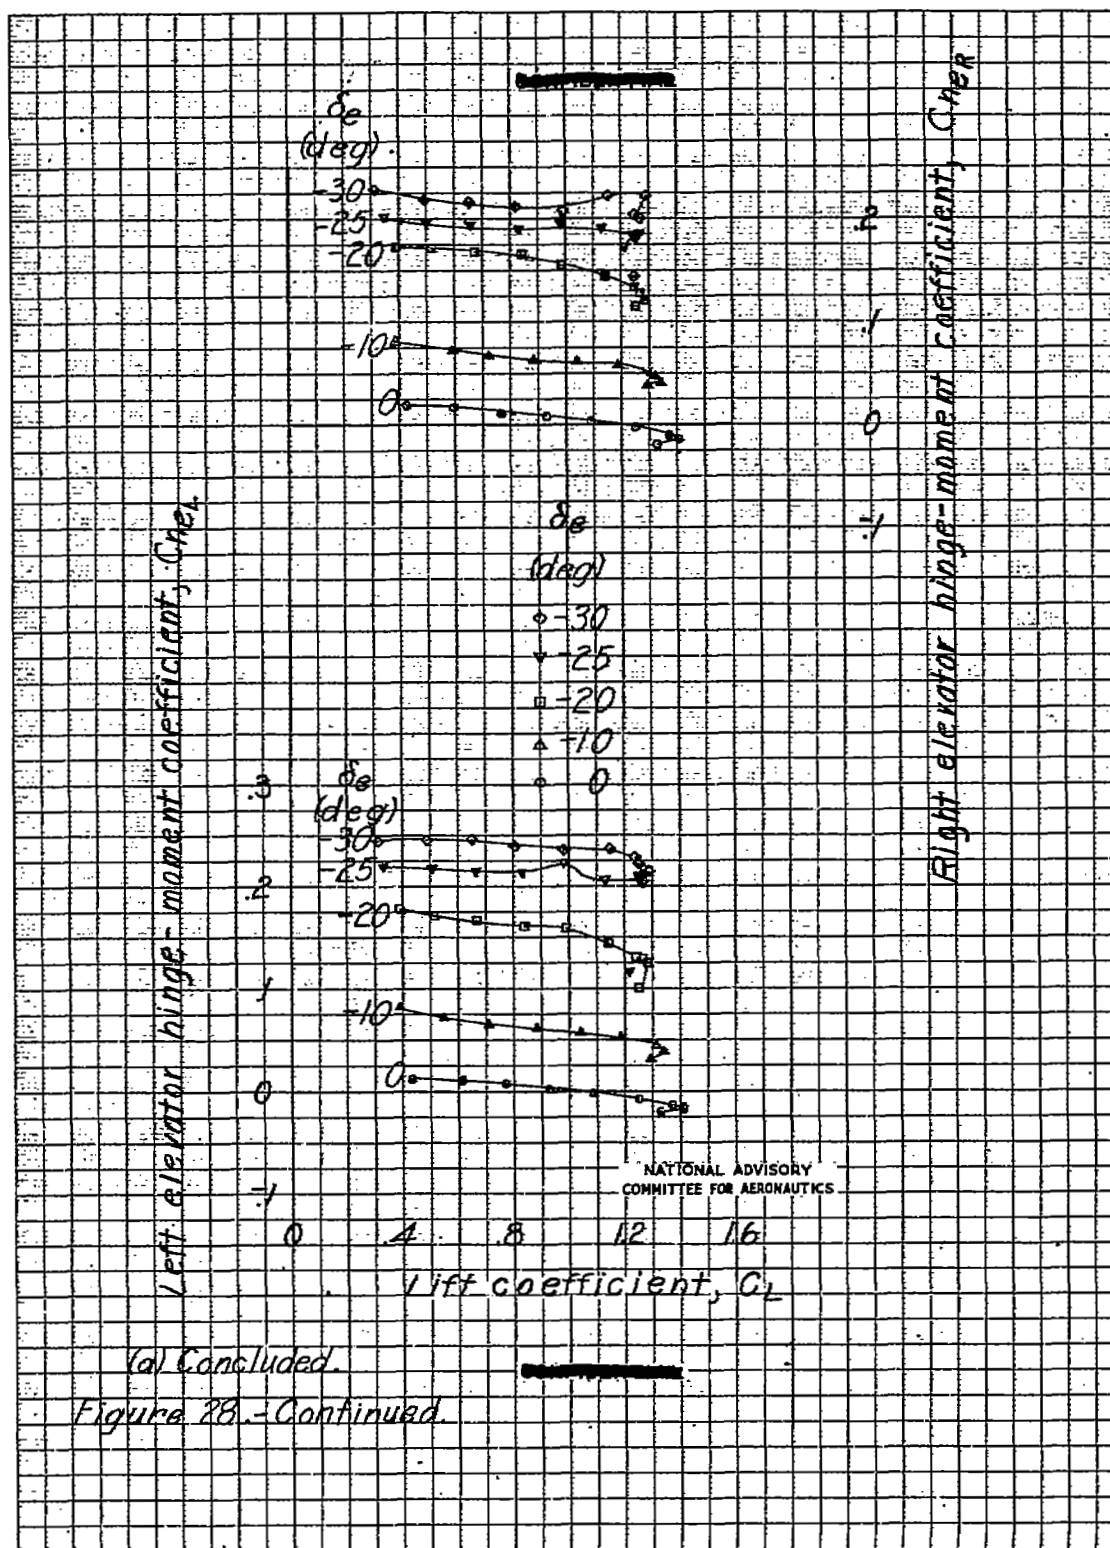 δe
(deg).
-30
-25
-20
-10
0
.2
.1
0
-.1
Right elevator hinge-moment coefficient, CheR
δe
(deg)
-30
-25
-20
-10
0
Left elevator hinge-moment coefficient, CheL
.3
.2
.1
0
-.1
δe
(deg)
-30
-25
-20
-10
0
NATIONAL ADVISORY
COMMITTEE FOR AERONAUTICS
0 .4 .8 1.2 1.6
Lift coefficient, CL
(a) Concluded.
Figure 28.-Continued.